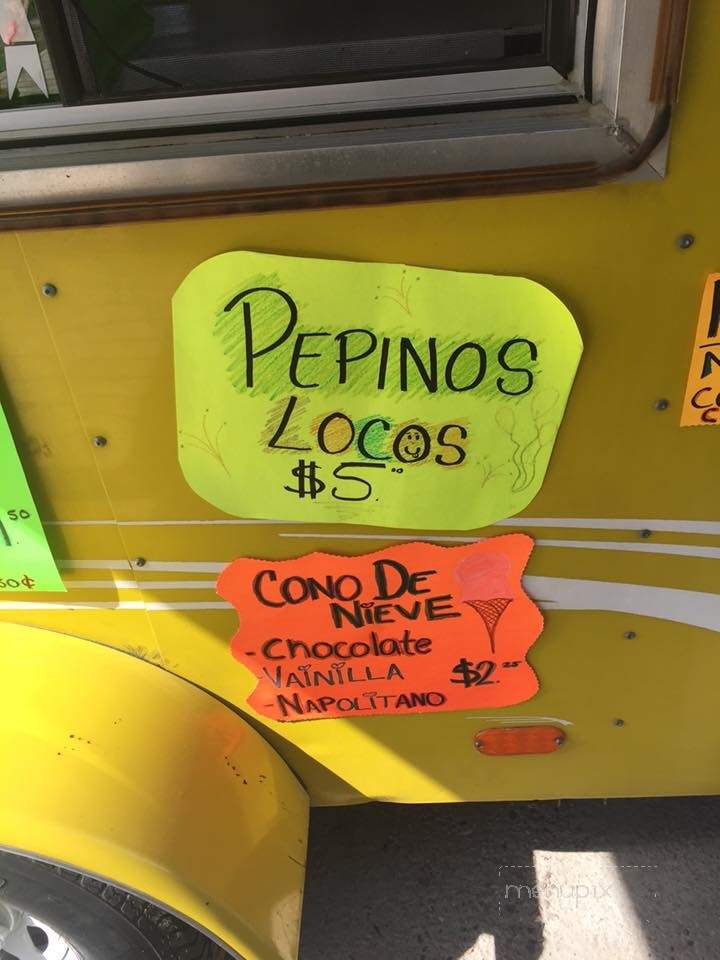 PEPINOS
LOCOS
$5.00
CONO DE
NIEVE
-Chocolate
-VAINILLA
-NAPOLITANO
$2.25
.50
50¢
menupix